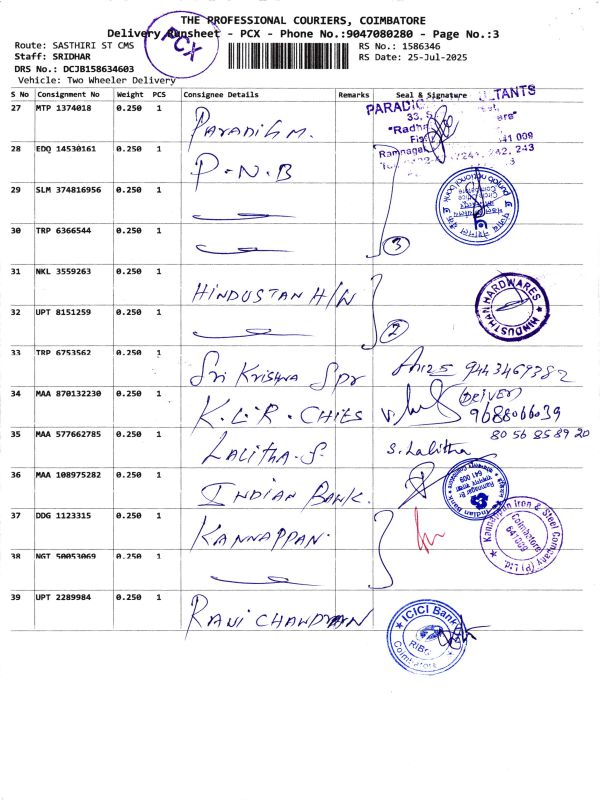 THE PROFESSIONAL COURIERS, COIMBATORE
Delivery Runsheet - PCX - Phone No.:9047080280 - Page No.:3
PCX
Route: SASTHIRI ST CMS
RS No.: 1586346
Staff: SRIDHAR
RS Date: 25-Jul-2025
DRS No.: DCJB158634603
Vehicle: Two Wheeler Delivery
S No Consignment No Weight PCS Consignee Details Remarks Seal & Signature
27 MTP 1374018 0.250 1
28 EDQ 14530161 0.250 1 P.N.B
29 SLM 374816956 0.250 1
30 TRP 6366544 0.250 1
3
31 NKL 3559263 0.250 1 HINDUSTAN H/W
HINDUSTHAN HARDWARES
32 UPT 8151259 0.250 1
2
33 TRP 6753562 0.250 1 Sri Krishna Spr
9443469382
34 MAA 870132230 0.250 1 K.L.R. CHITS
9688066039
35 MAA 577662785 0.250 1 LALITHA.S. S. Lalitha
80 56 85 89 20
36 MAA 108975282 0.250 1 INDIAN BANK.
37 DDG 1123315 0.250 1 KANNAPPAN.
Kannappan Iron & Steel Company (P) Ltd.
Coimbatore
641009
38 NGT 50053069 0.250 1
39 UPT 2289984 0.250 1
ICICI Bank
Coimbatore